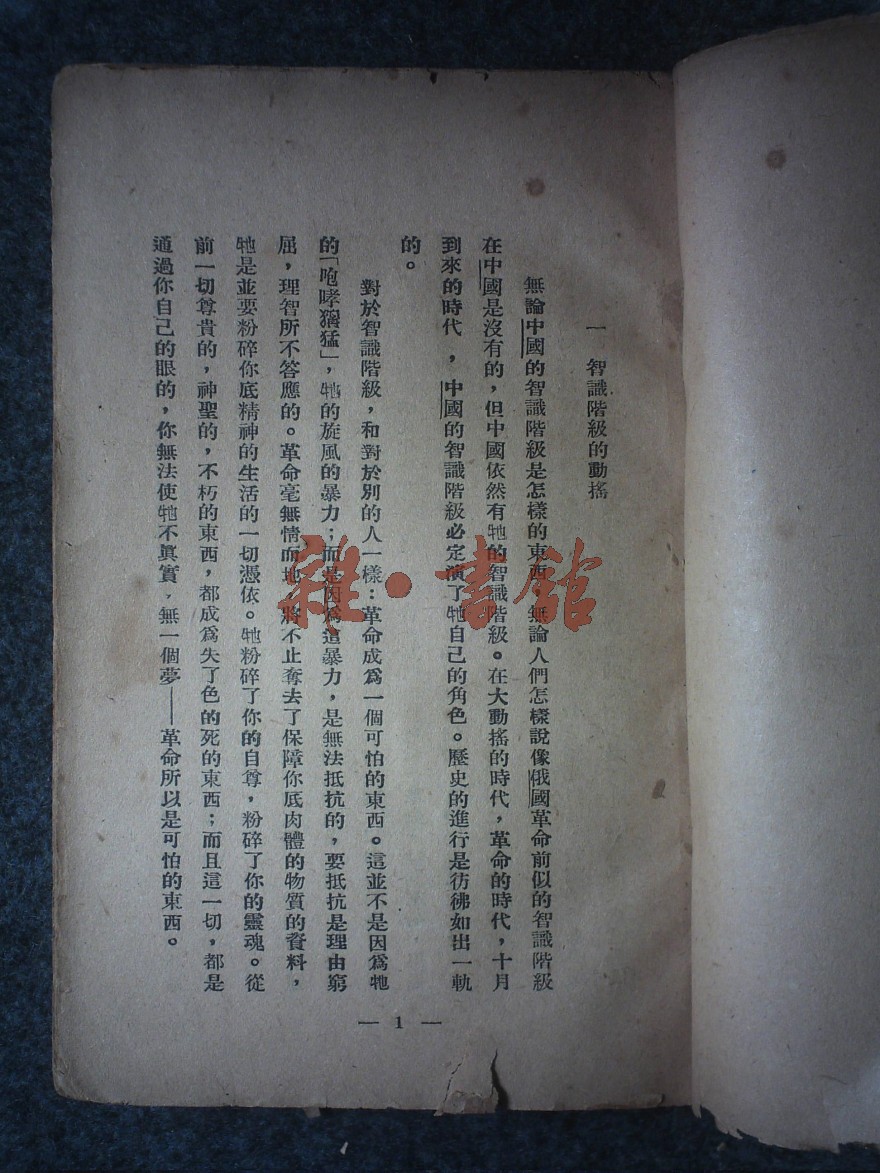 一　智識階級的動搖
無論中國的智識階級是怎樣的東西，無論人們怎樣說像俄國革命前似的智識階級
在中國是沒有的，但中國依然有牠的智識階級。在大動搖的時代，革命的時代，十月
到來的時代，中國的智識階級必定演了牠自己的角色。歷史的進行是彷彿如出一軌
的。
對於智識階級，和對於別的人一樣：革命成爲一個可怕的東西。這並不是因爲牠
的「咆哮猖猛」，牠的旋風的暴力；而是因爲這暴力，是無法抵抗的，要抵抗是理由窮
屈，理智所不答應的。革命毫無情面地，將不止奪去了保障你底肉體的物質的資料，
牠是並要粉碎你底精神的生活的一切憑依。牠粉碎了你的自尊，粉碎了你的靈魂。從
前一切尊貴的，神聖的，不朽的東西，都成爲失了色的死的東西；而且這一切，都是
通過你自己的眼的，你無法使牠不眞實，無一個夢——革命所以是可怕的東西。
— 1 —
雜·書館